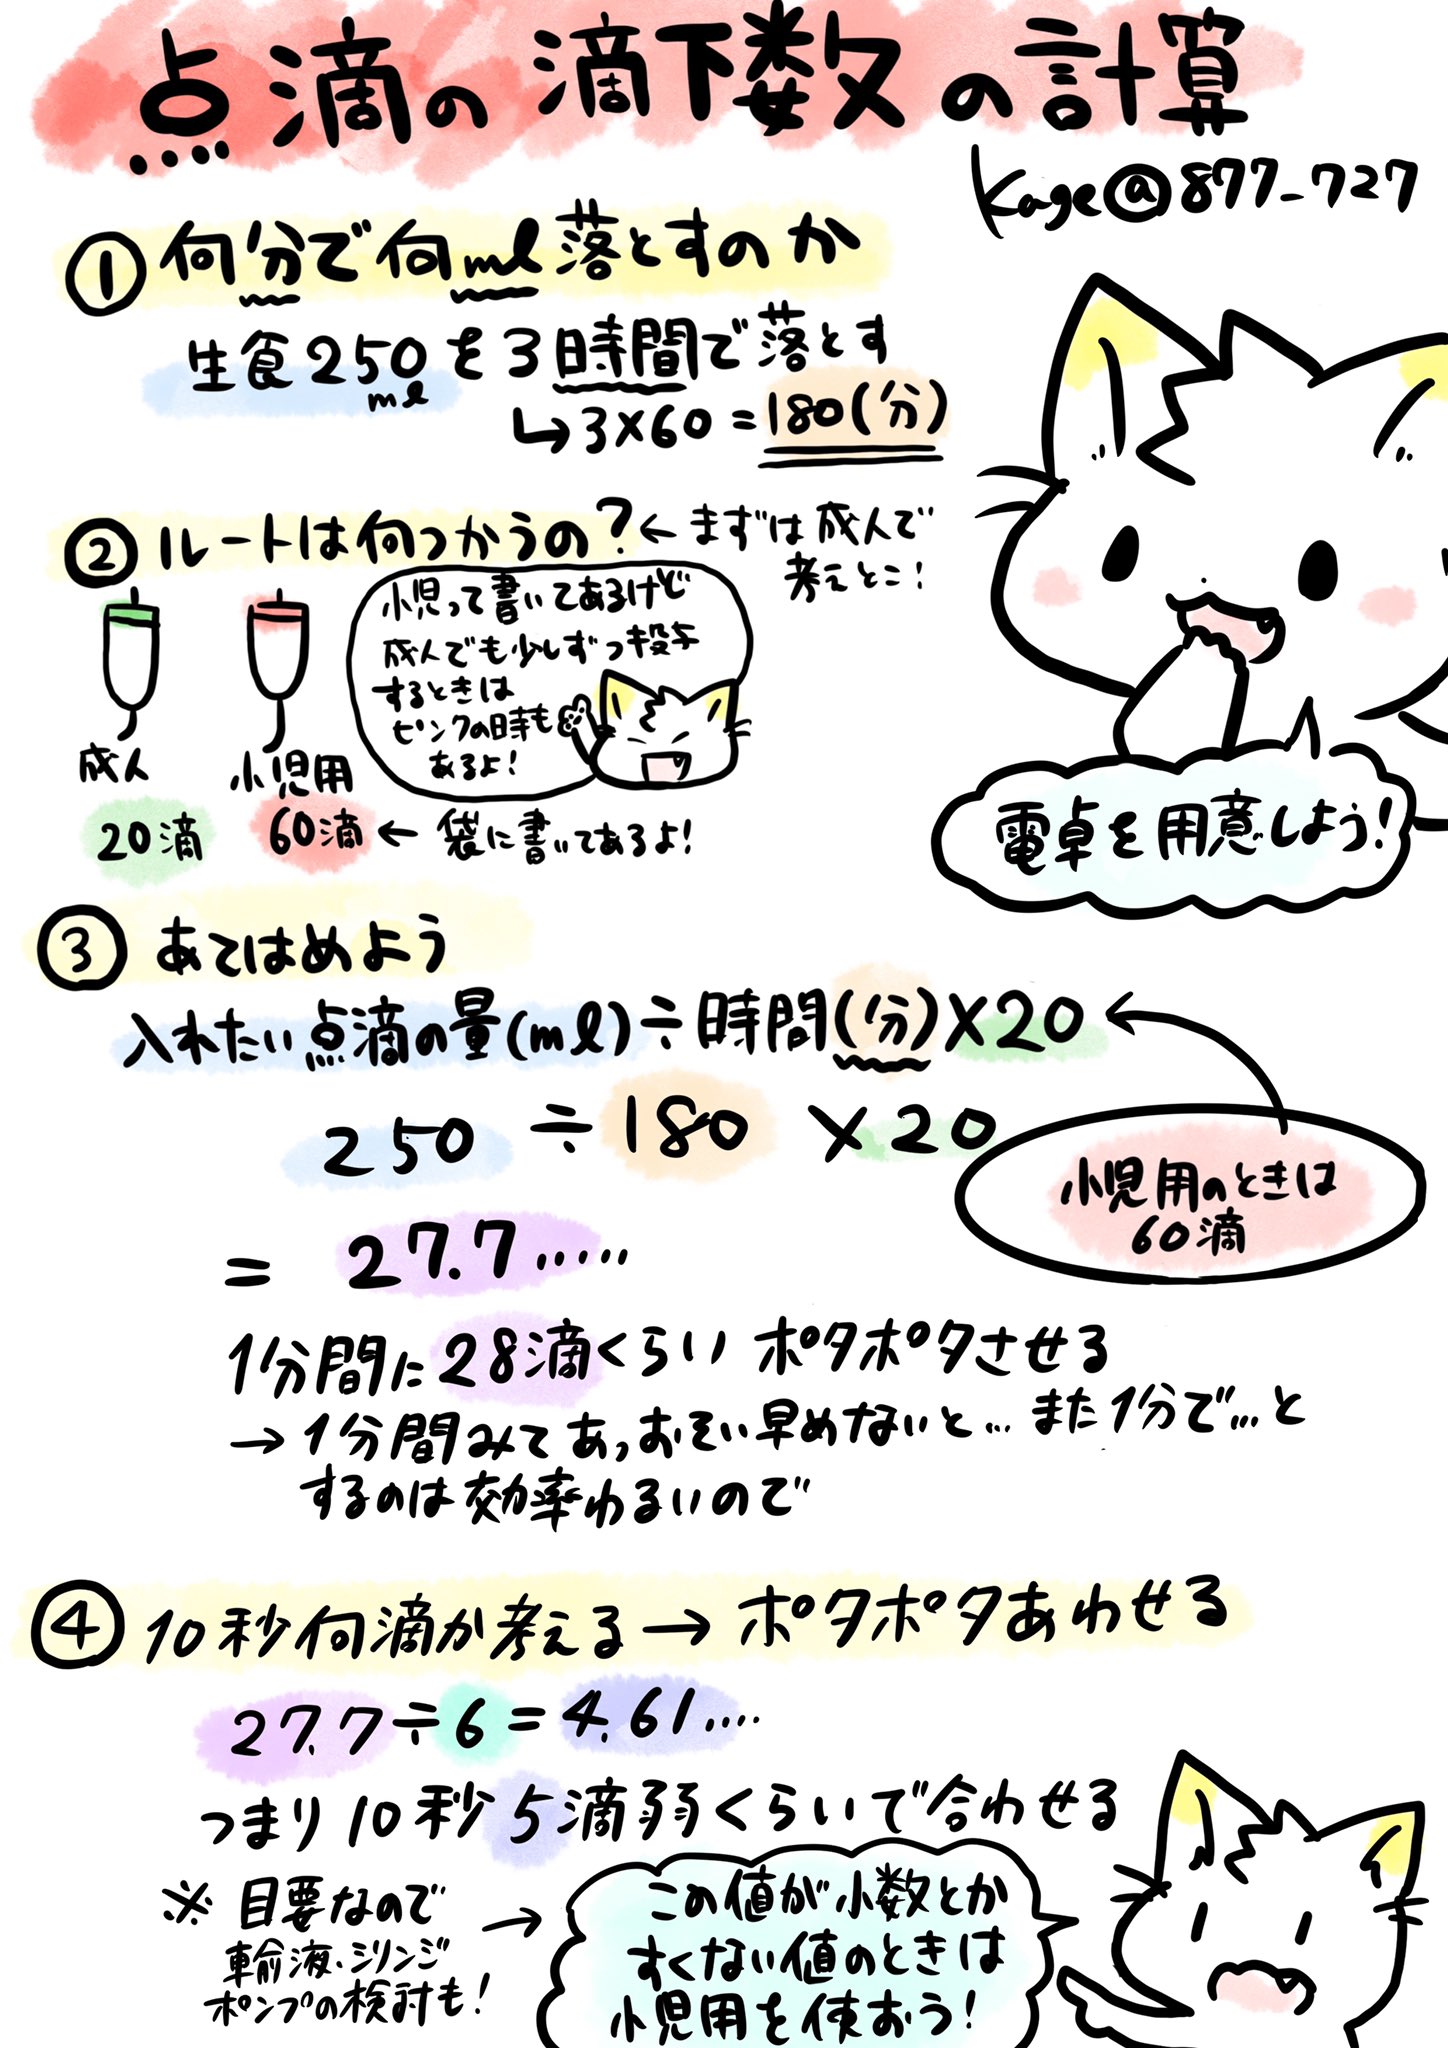 点滴の滴下数の計算
Kage@877_727
① 何分で何ml落とすのか
生食250mlを3時間で落とす
↳3×60=180(分)
② ルートは何つかうの?←まずは成人で
考えとこ!
小児って書いてあるけど
成人でも少しずつ投与
するときは
ピンクの時も
あるよ!
成人
小児用
20滴
60滴←袋に書いてあるよ!
電卓を用意しよう!
③ あてはめよう
入れたい点滴の量(ml)÷時間(分)×20
250÷180×20
小児用のときは
60滴
= 27.7.....
1分間に28滴くらいポタポタさせる
→1分間みてあっおそい早めないと...また1分で...と
するのは効率わるいので
④ 10秒何滴か考える→ポタポタあわせる
27.7÷6=4.61....
つまり10秒5滴弱くらいで合わせる
※目要なので
輸液・シリンジ
ポンプの検討も!
→
この値が小数とか
すくない値のときは
小児用を使おう!